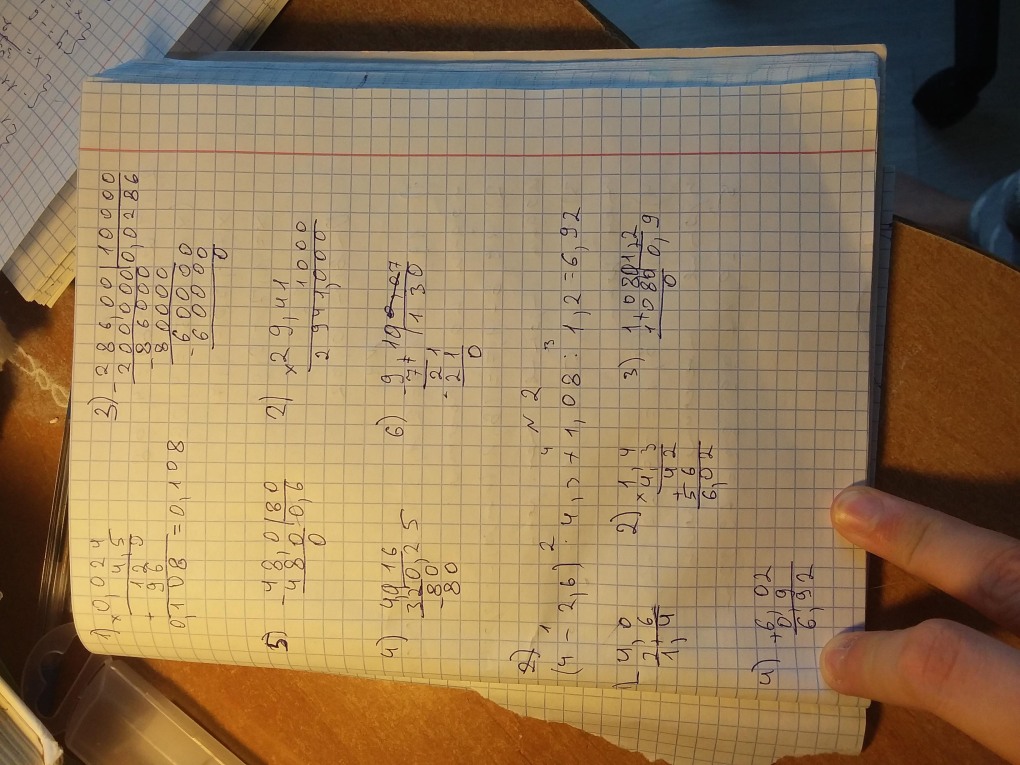 1) × 0,024
4,5
+ 120
96
0,1080 = 0,108
3) - 286,00 | 10000
200000 | 0,0286
- 86000
80000
- 60000
60000
0
5) - 48,0 | 80
48 0 | 0,6
0
2) × 29,41
1000
29 41,000
4) 4,0 | 16
32 | 0,25
- 80
80
6) 9
- 7 | 130
- 21
21
0
N 2
2)
1 2 4 3
(4 - 2,6) · 4,3 + 1,08 : 1,2 = 6,92
1) - 4,0
2,6
1,4
2) × 1,4
4,3
+ 42
56
6,02
3) 1,080 | 1,2
1,080 | 0,9
0
4) + 6,02
0,9
6,92